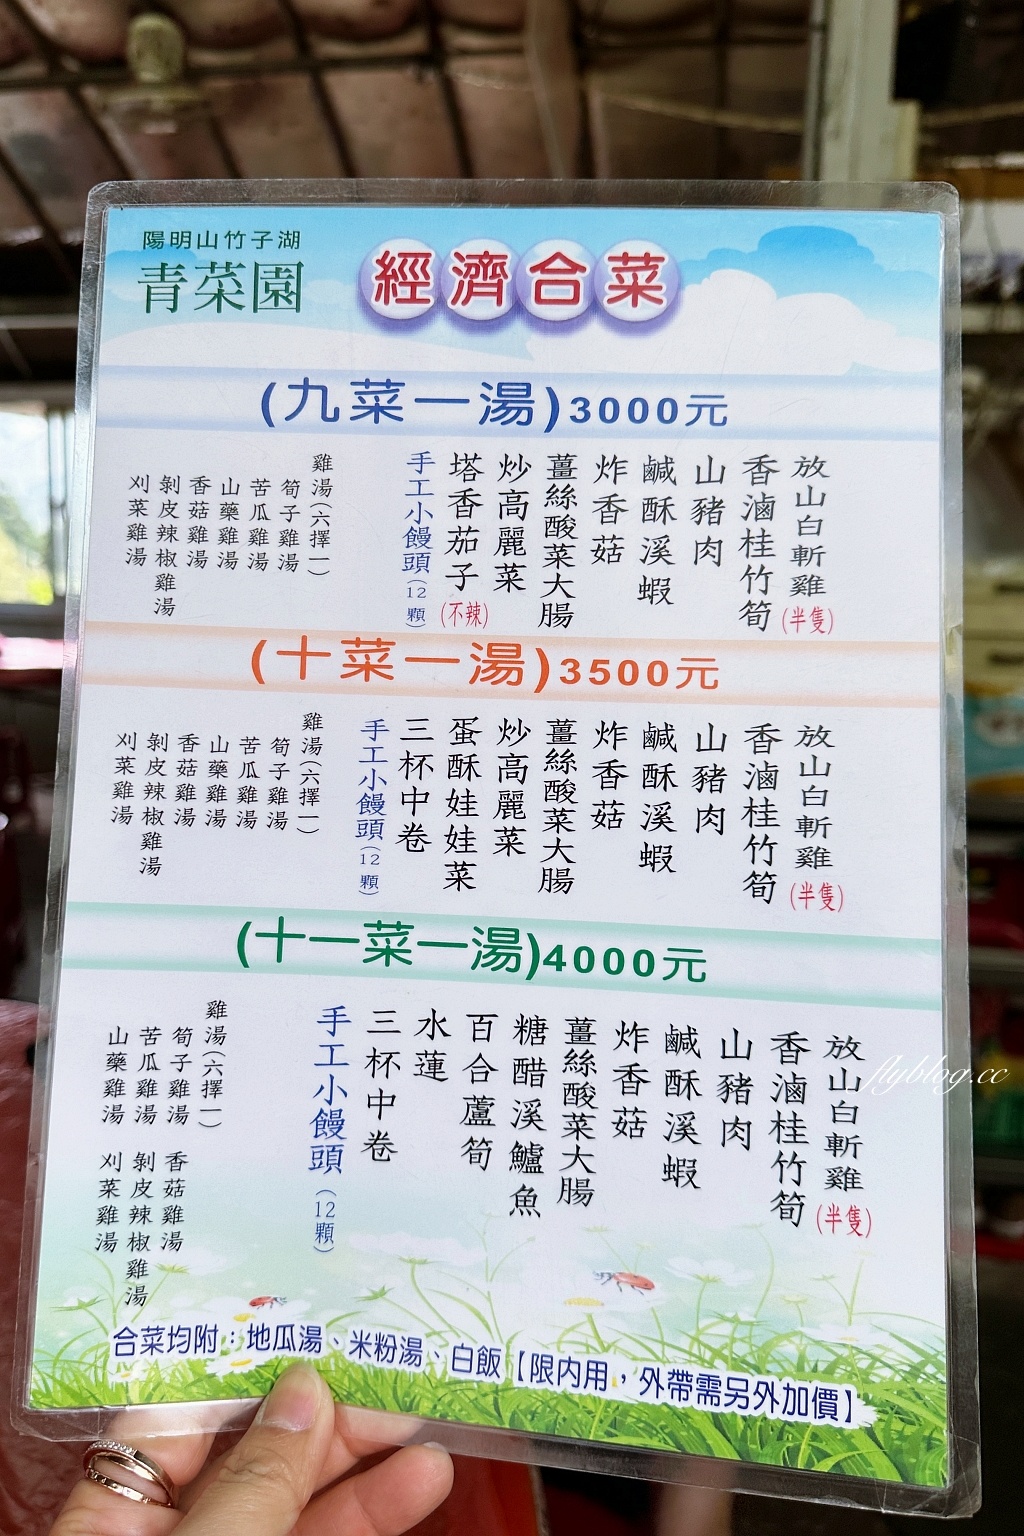 陽明山竹子湖
青菜園
經濟合菜
(九菜一湯)3000元
放山白斬雞(半隻)
香滷桂竹筍
山豬肉
鹹酥溪蝦
炸香菇
薑絲酸菜大腸
炒高麗菜
塔香茄子(不辣)
手工小饅頭(12顆)
雞湯(六擇一)
筍子雞湯
苦瓜雞湯
山藥雞湯
香菇雞湯
剝皮辣椒雞湯
刈菜雞湯
(十菜一湯)3500元
放山白斬雞(半隻)
香滷桂竹筍
山豬肉
鹹酥溪蝦
炸香菇
薑絲酸菜大腸
炒高麗菜
蛋酥娃娃菜
三杯中卷
手工小饅頭(12顆)
雞湯(六擇一)
筍子雞湯
苦瓜雞湯
山藥雞湯
香菇雞湯
剝皮辣椒雞湯
刈菜雞湯
(十一菜一湯)4000元
放山白斬雞(半隻)
香滷桂竹筍
山豬肉
鹹酥溪蝦
炸香菇
薑絲酸菜大腸
糖醋溪鱸魚
百合蘆筍
水蓮
三杯中卷
手工小饅頭(12顆)
雞湯(六擇一)
筍子雞湯
苦瓜雞湯
山藥雞湯
香菇雞湯
剝皮辣椒雞湯
刈菜雞湯
合菜均附：地瓜湯、米粉湯、白飯【限內用，外帶需另外加價】
flyblog.cc